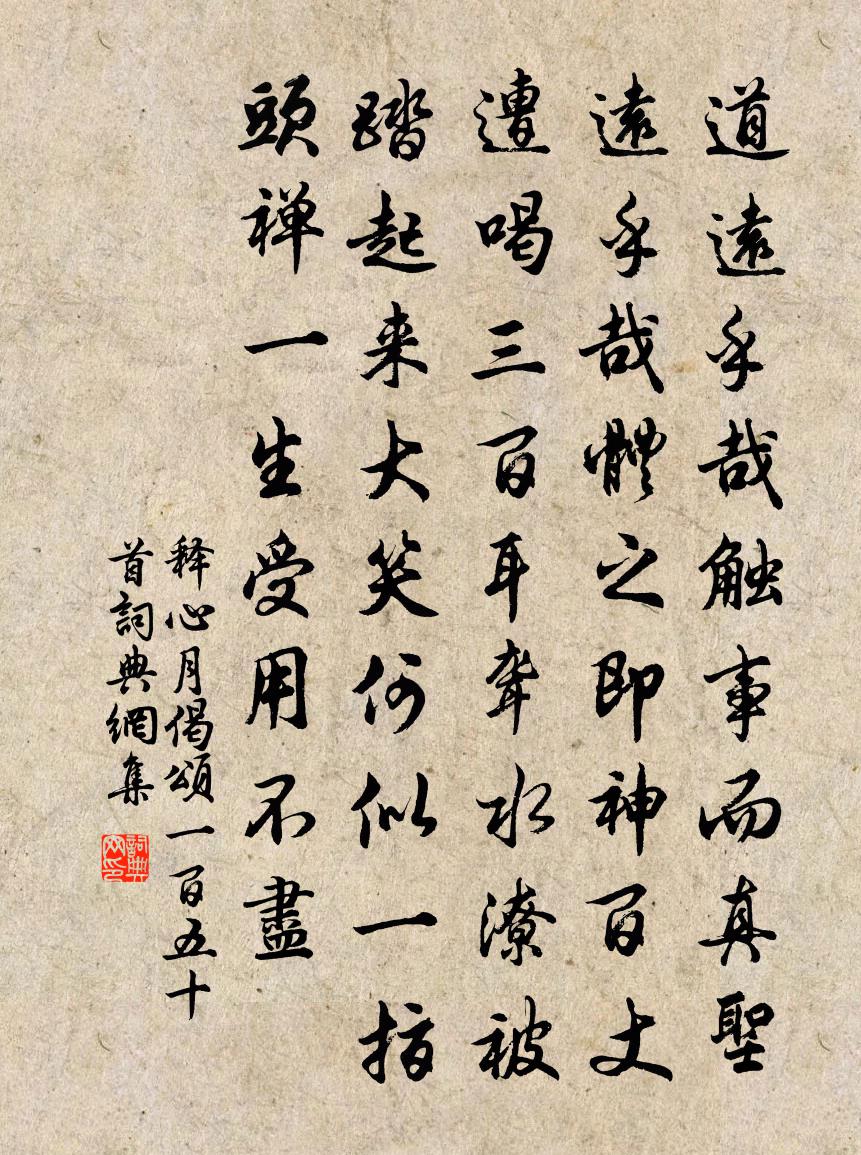 道遠乎哉触事而真聖
遠乎哉體之即神百丈
遭喝三百耳聋水潦被
踏起来大笑何似一指
頭禅一生受用不盡
释心月偈頌一百五十
首詞典網集
詞典
网印